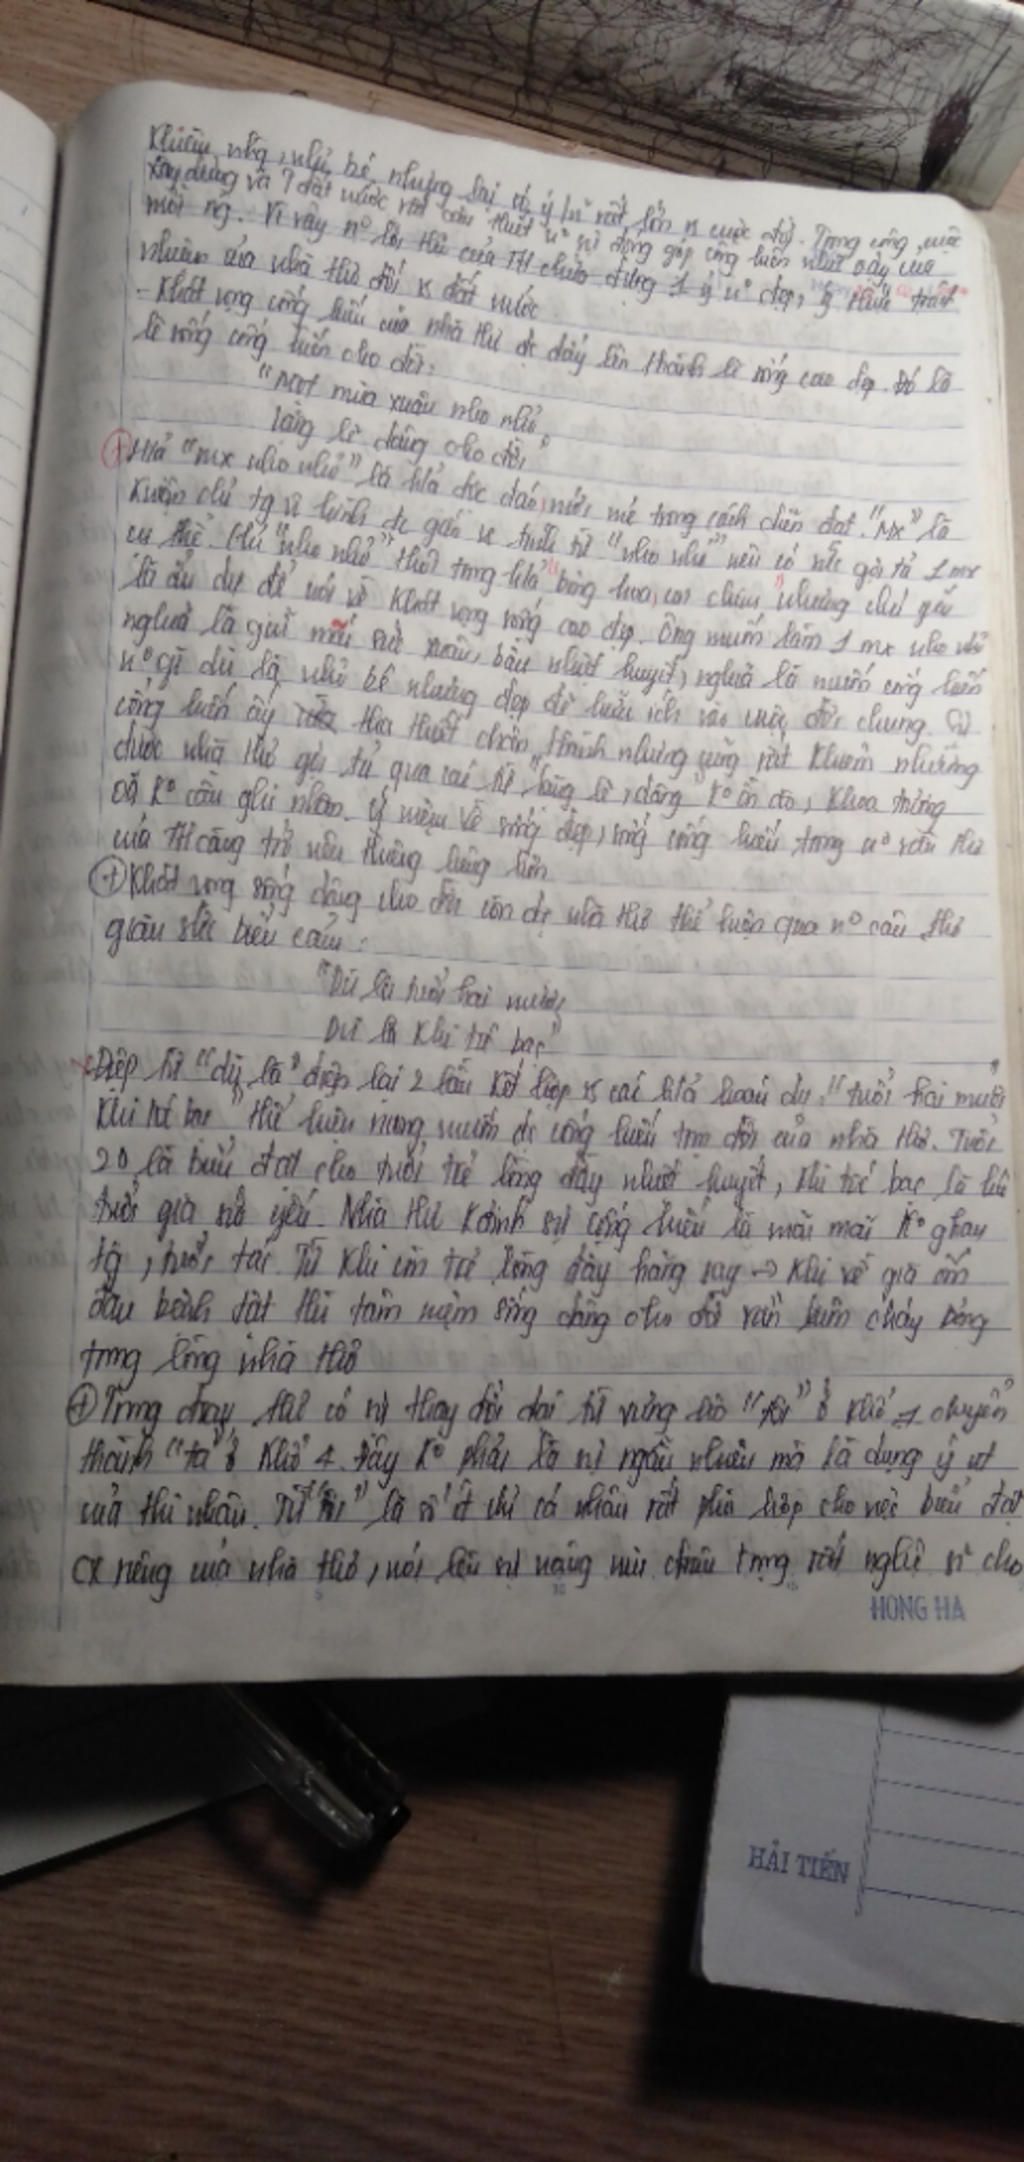 nhỏ bé nhưng lại có ý rất lớn cuộc đời. Trong công cuộc
xây dựng và đất nước rất cần thiết sự đóng góp công hiến như vậy của
mỗi ng. Vì vậy lời thơ của TH chứa đựng 1 ý đẹp, ý thức trách
nhiệm của nhà thơ đối vs đất nước
- Khát vọng cống hiến của nhà thơ đc đẩy lên thành lẽ sống cao đẹp. Đó là
lẽ sống cống hiến cho đời:
"Một mùa xuân nho nhỏ
Lặng lẽ dâng cho đời"
+ H/ả "mx nho nhỏ" là h/ả độc đáo, mới mẻ trong cách diễn đạt. "Mx" là
chỉ tg vô hình đc gắn vs tính từ "nho nhỏ" nên có sức gợi tả 1 mx
cụ thể. "nho nhỏ" bông hoa, con chim
là ẩn dụ để nói về khát vọng sống cao đẹp. Ông muốn làm 1 mx nho nhỏ
nghĩa là giữ mãi sức xuân, bầu nhiệt huyết, nghĩa là muốn cống hiến
gì dù là nhỏ bé nhưng đẹp đẽ hữu ích vào cuộc đời chung.
cống hiến ấy tha thiết chân thành nhưng cũng rất khiêm nhường
được nhà thơ gợi tả qua các từ "lặng lẽ, dâng" k° ồn ào, khoa trương
k° cần ghi nhận. ý niệm về sống đẹp, sống cống hiến trong vần thơ
của TH càng trở nên thiêng liêng hơn
+ Khát vọng sống dâng cho đời còn đc nhà thơ thể hiện qua câu thơ
giàu sức biểu cảm:
"Dù là tuổi hai mươi
Dù là khi tóc bạc"
Điệp từ "dù là" điệp lại 2 lần kết hợp vs các h/ả hoán dụ: "tuổi hai mươi
khi tóc bạc" thể hiện mong muốn đc cống hiến trọn đời của nhà thơ. Tuổi
20 là biểu đạt cho tuổi trẻ lòng đầy nhiệt huyết, khi tóc bạc là lúc
tuổi già sức yếu. Nhà thơ k/định sự cống hiến là mãi mãi k°
tg, tuổi tác. Từ khi còn trẻ lòng đầy hăng say → khi về già ốm
đau bệnh tật thì tâm niệm sống dâng cho đời vẫn luôn cháy bỏng
trong lòng nhà thơ
+ Trong đoạn thơ có sự thay đổi đại từ xưng hô "tôi" ở khổ 1 chuyển
thành "ta" ở khổ 4. Đây k° phải là sự ngẫu nhiên mà là dụng ý nt
của thi nhân. Từ "tôi" là số ít chỉ cá nhân rất phù hợp cho việc biểu đạt
cx riêng của nhà thơ, nói lên sự nâng niu trân trọng cho
HONG HA
HẢI TIẾN